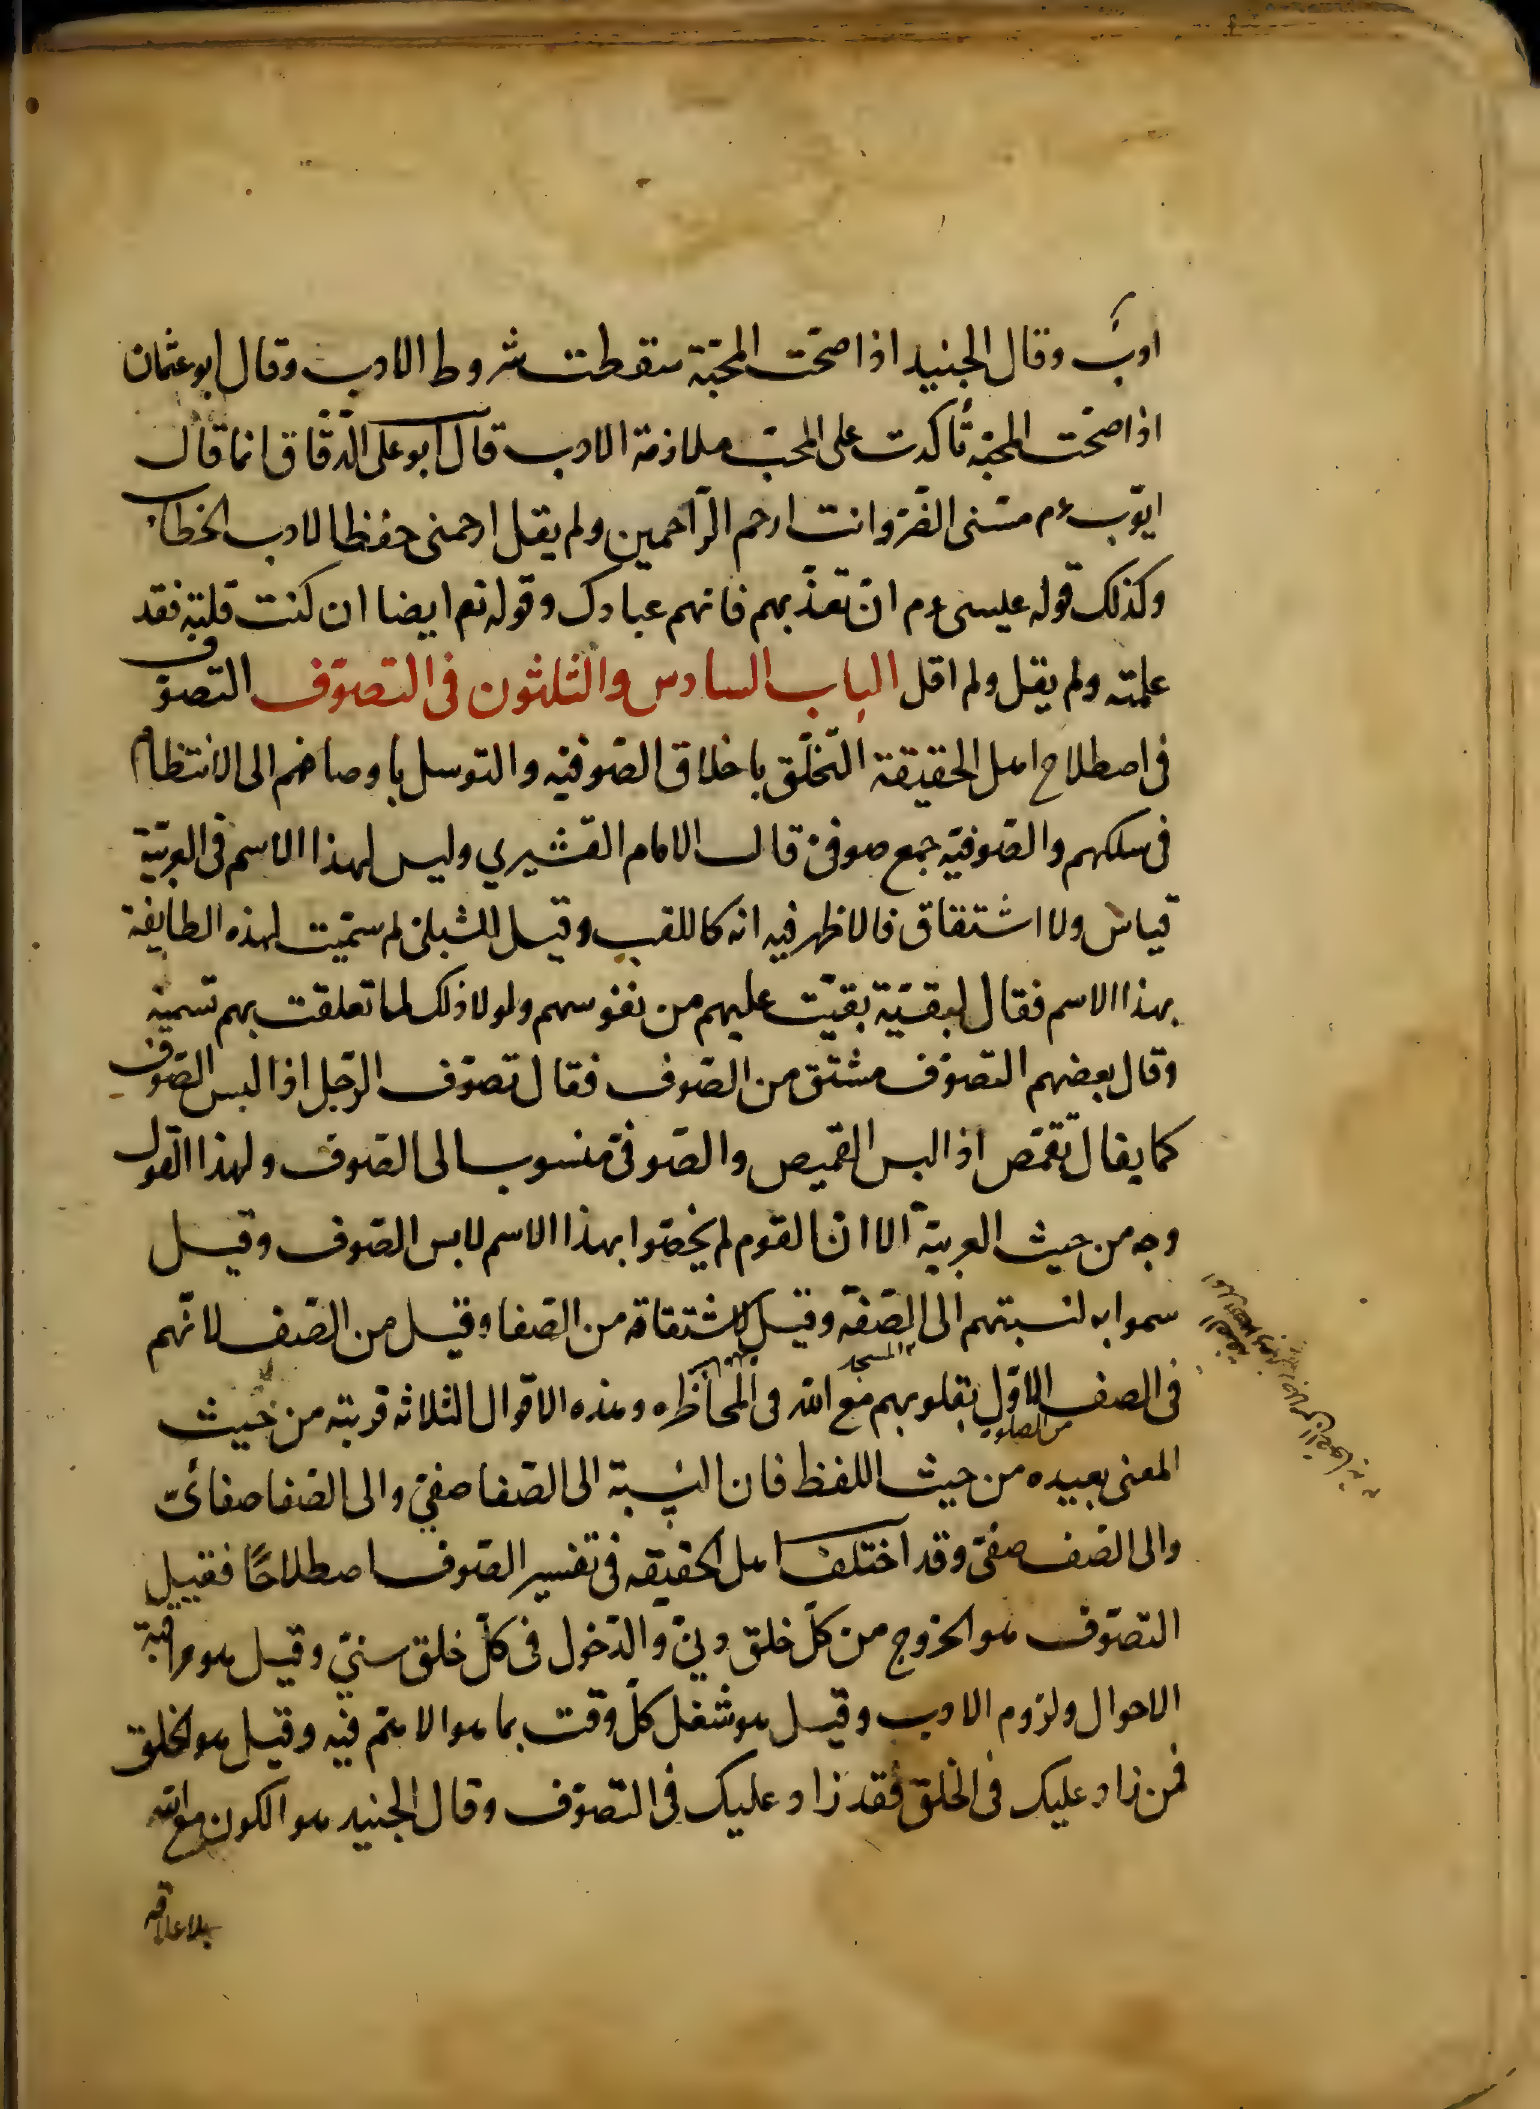 ادبٌ وقال الجنيد اذا صحّت المحبّة سقطت شروط الادب وقال ابو عثمان
اذا صحّت المحبّة تأكدت على المحبّ ملازمة الادب قال ابو على الدّقّاق انما قال
ايّوب ءم مسّنى الضّر وانت ارحم الرّاحمين ولم يقل ارحمنى حفظا لادب الخطاب
وكذلك قوله عيسى ءم ان تعذّبهم فانهم عبادك وقوله تع ايضا ان كنت قلته فقد
علمته ولم يقل ولم اقل الباب السادس والثلثون فى التصوّف التصوّف
فى اصطلاح اهل الحقيقة التخلّق باخلاق الصّوفيّه والتوسل باوصافهم الى الانتظام
فى سلكهم والصّوفيّه جمع صوفىّ قال الامام القشيري وليس لهذا الاسم فى العربيّة
قياس ولا اشتقاق فالاظهر فيه انه كاللقب وقيل للشبلىّ لم سمّيت لهذه الطايفة
بهذا الاسم فقال لبقيّة بقيت عليهم من نفوسهم ولولا ذلك لما تعلقت بهم تسمية
وقال بعضهم التصوّف مشتق من الصّوف فقال تصوّف الرّجل اذا لبس الصّوف
كما يقال تقمّص اذا لبس القميص والصّوفىّ منسوب الى الصّوف ولهذا القول
وجه من حيث العربيّة الا انّ القوم لم يخصّوا بهذا الاسم لابس الصّوف وقيل
سموا به لنسبتهم الى الصّفّه وقيل لاشتقاقه من الصّفا وقيل من الصّف لانّهم
فى الصف الاوّل بقلوبهم مع الله فى المحاظره وهذه الاقوال الثلاثه قريبة من حيث
المعنى بعيده من حيث اللفظ فان النسبة الى الصّفا صفىّ والى الصّفا صفائىّ
والى الصّف صفّىّ وقد اختلف اهل الحقيقه فى تفسير الصّوف اصطلاحًا فقيل
التصوّف هو الخروج من كلّ خلق دنىّ والدّخول فى كلّ خلق سنىّ وقيل هو مراقبة
الاحوال ولزوم الادب وقيل هو شغل كلّ وقت بما هو الاهمّ فيه وقيل هو الخلق
فمن زاد عليك فى الخلق فقد زاد عليك فى التصوّف وقال الجنيد هو الكون مع الله
بلا علاقه